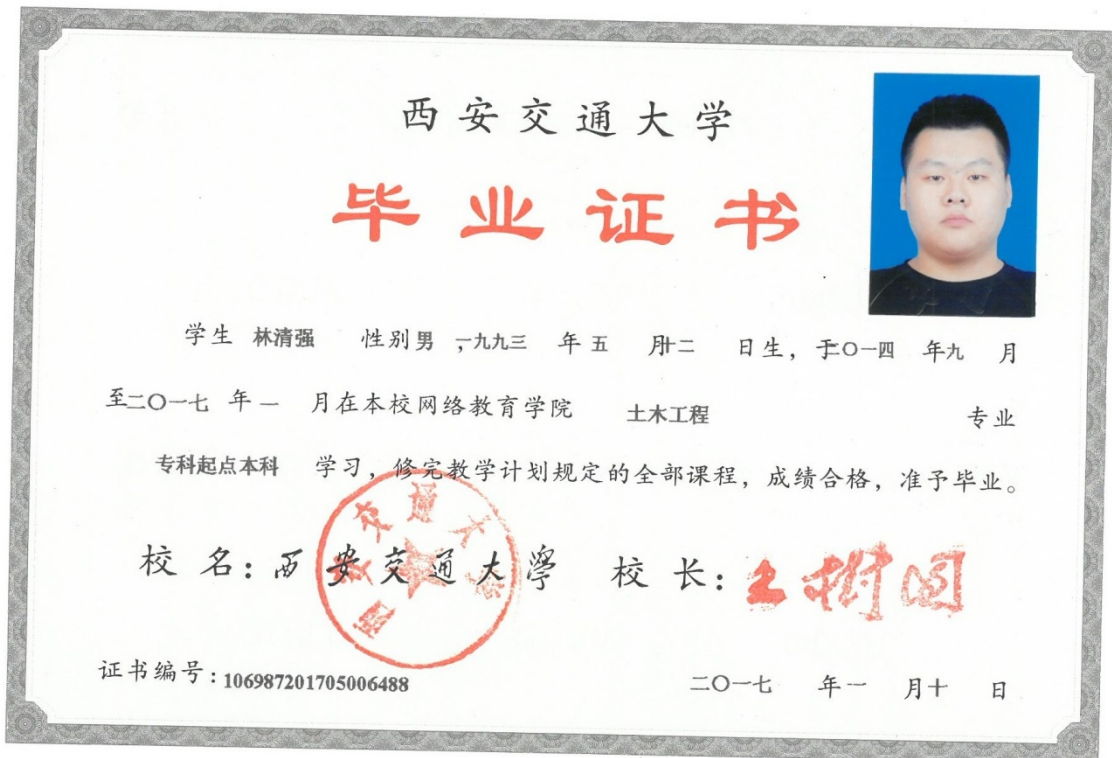 西安交通大学
毕业证书
学生 林清强 性别男 ,一九九三 年五 月十二 日生，于二〇一四 年九 月
至二〇一七 年一 月在本校网络教育学院 土木工程 专业
专科起点本科 学习，修完教学计划规定的全部课程，成绩合格，准予毕业。
西安交通大学
校 名：西安交通大学 校 长：王树国
证书编号：106987201705006488
二〇一七 年一 月十 日